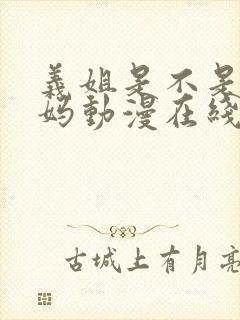 義姐是不是
妈動漫在綫
古城上有月亮